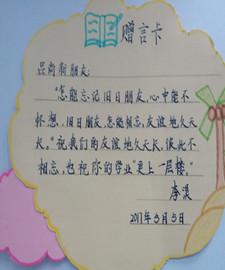 赠言卡
吕尚蔚朋友:
"怎能忘记旧日朋友,心中能不
怀想,旧日朋友怎能相忘,友谊地久天
长。"祝我们的友谊地久天长,彼此不
相忘,也祝你的学业"更上一层楼。"
李淏
2017年3月5日